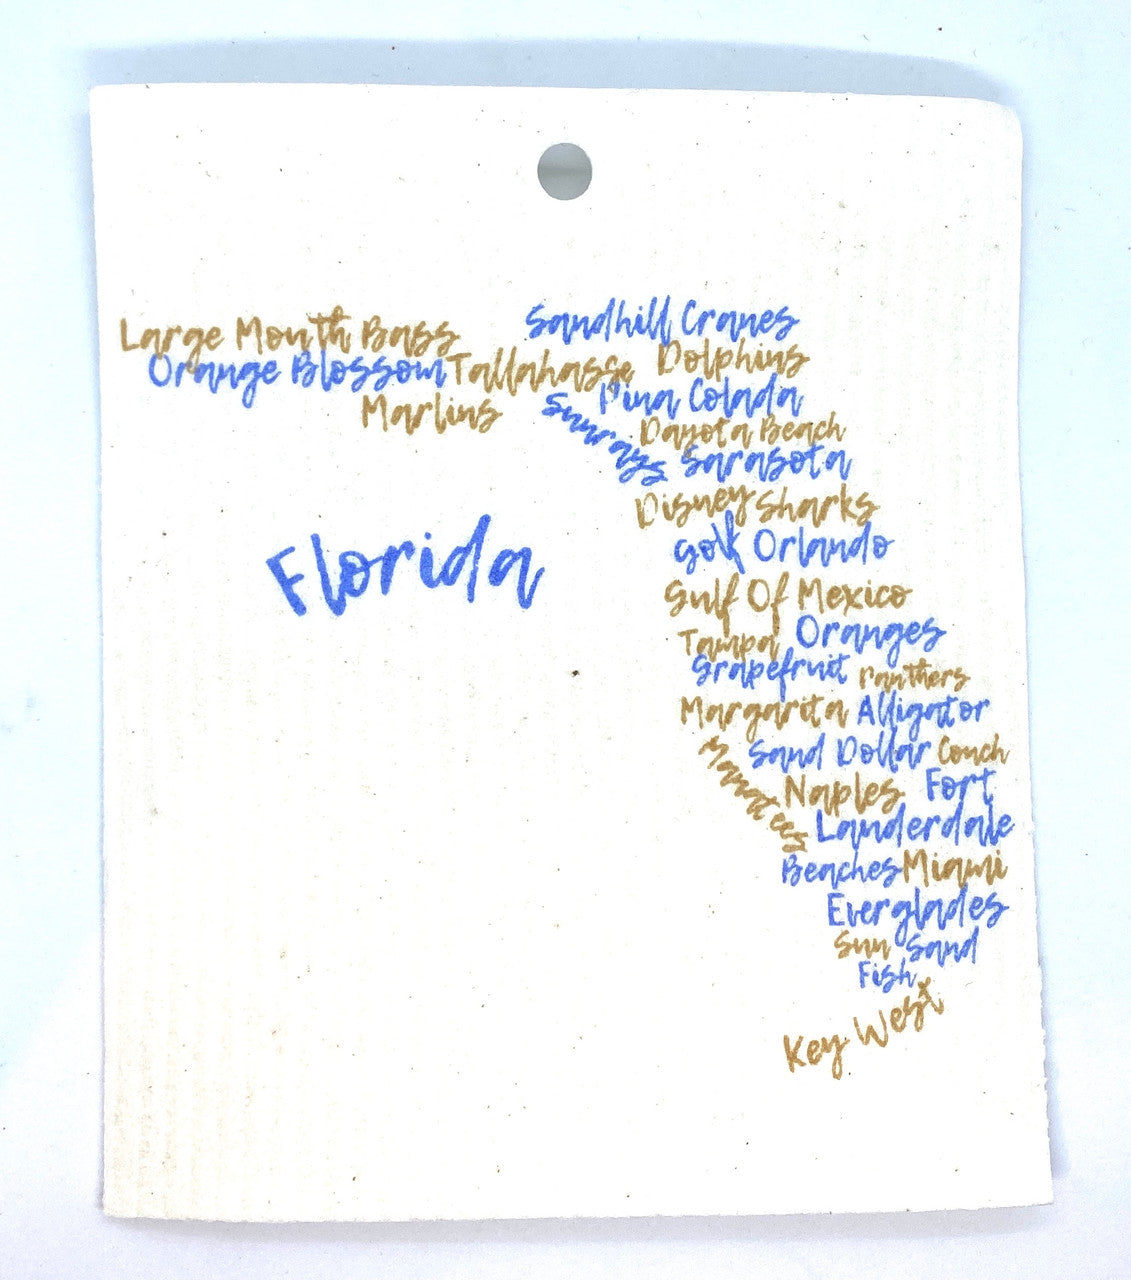 Large Mouth Bass Sandhill Cranes
Orange Blossom Tallahasse Dolphins
Marlins Sunrays Pina Colada
Dayota Beach
Sarasota
Disney Sharks
Florida Golf Orlando
Gulf Of Mexico
Tampa Oranges
Grapefruit Panthers
Margarita Alligator
Manatees Sand Dollar Couch
Naples Fort
Lauderdale
Beaches Miami
Everglades
Sun Sand
Fish
Key West